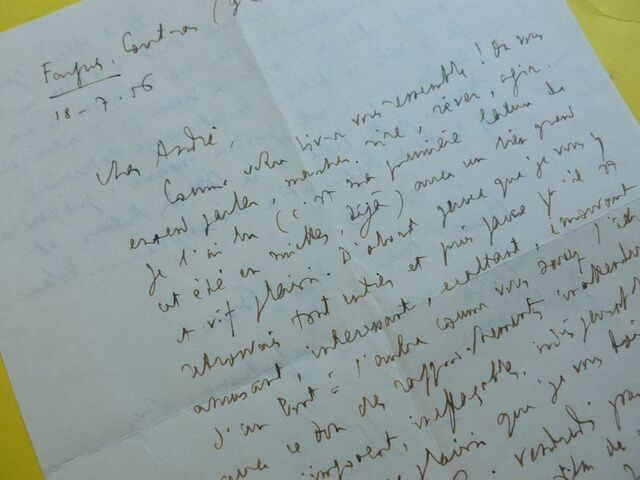 Coutras (G
18-7-56
Cher André,
Comme votre livre vous ressemble ! On vous
entend parler, marcher, rire, rêver, agir.
Je l'ai lu (c'est ma première lecture de
cet été en miettes, déjà) avec un très grand
et vif plaisir. D'abord parce que je vous y
retrouvais tout entier et puis parce qu'il est
amusant, intéressant, exaltant, émouvant
d'un bout à l'autre comme vous savez l'être
avec ce don des rapprochements inattendus
imposent, ineffaçables, indispensables
plaisir que je vous dois
vendredi